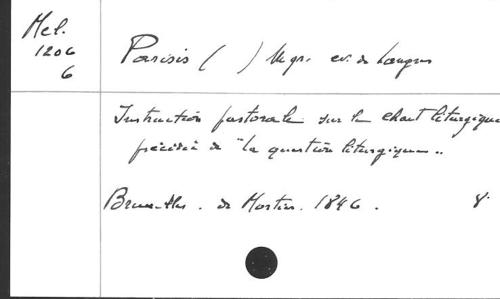 Mel.
1206
6
Parisis ( ) Mgr. ev. de Langres
Instruction pastorale sur le chant liturgique
précédée de "la question liturgique"..
Bruxelles. de Mortier. 1846. 8°